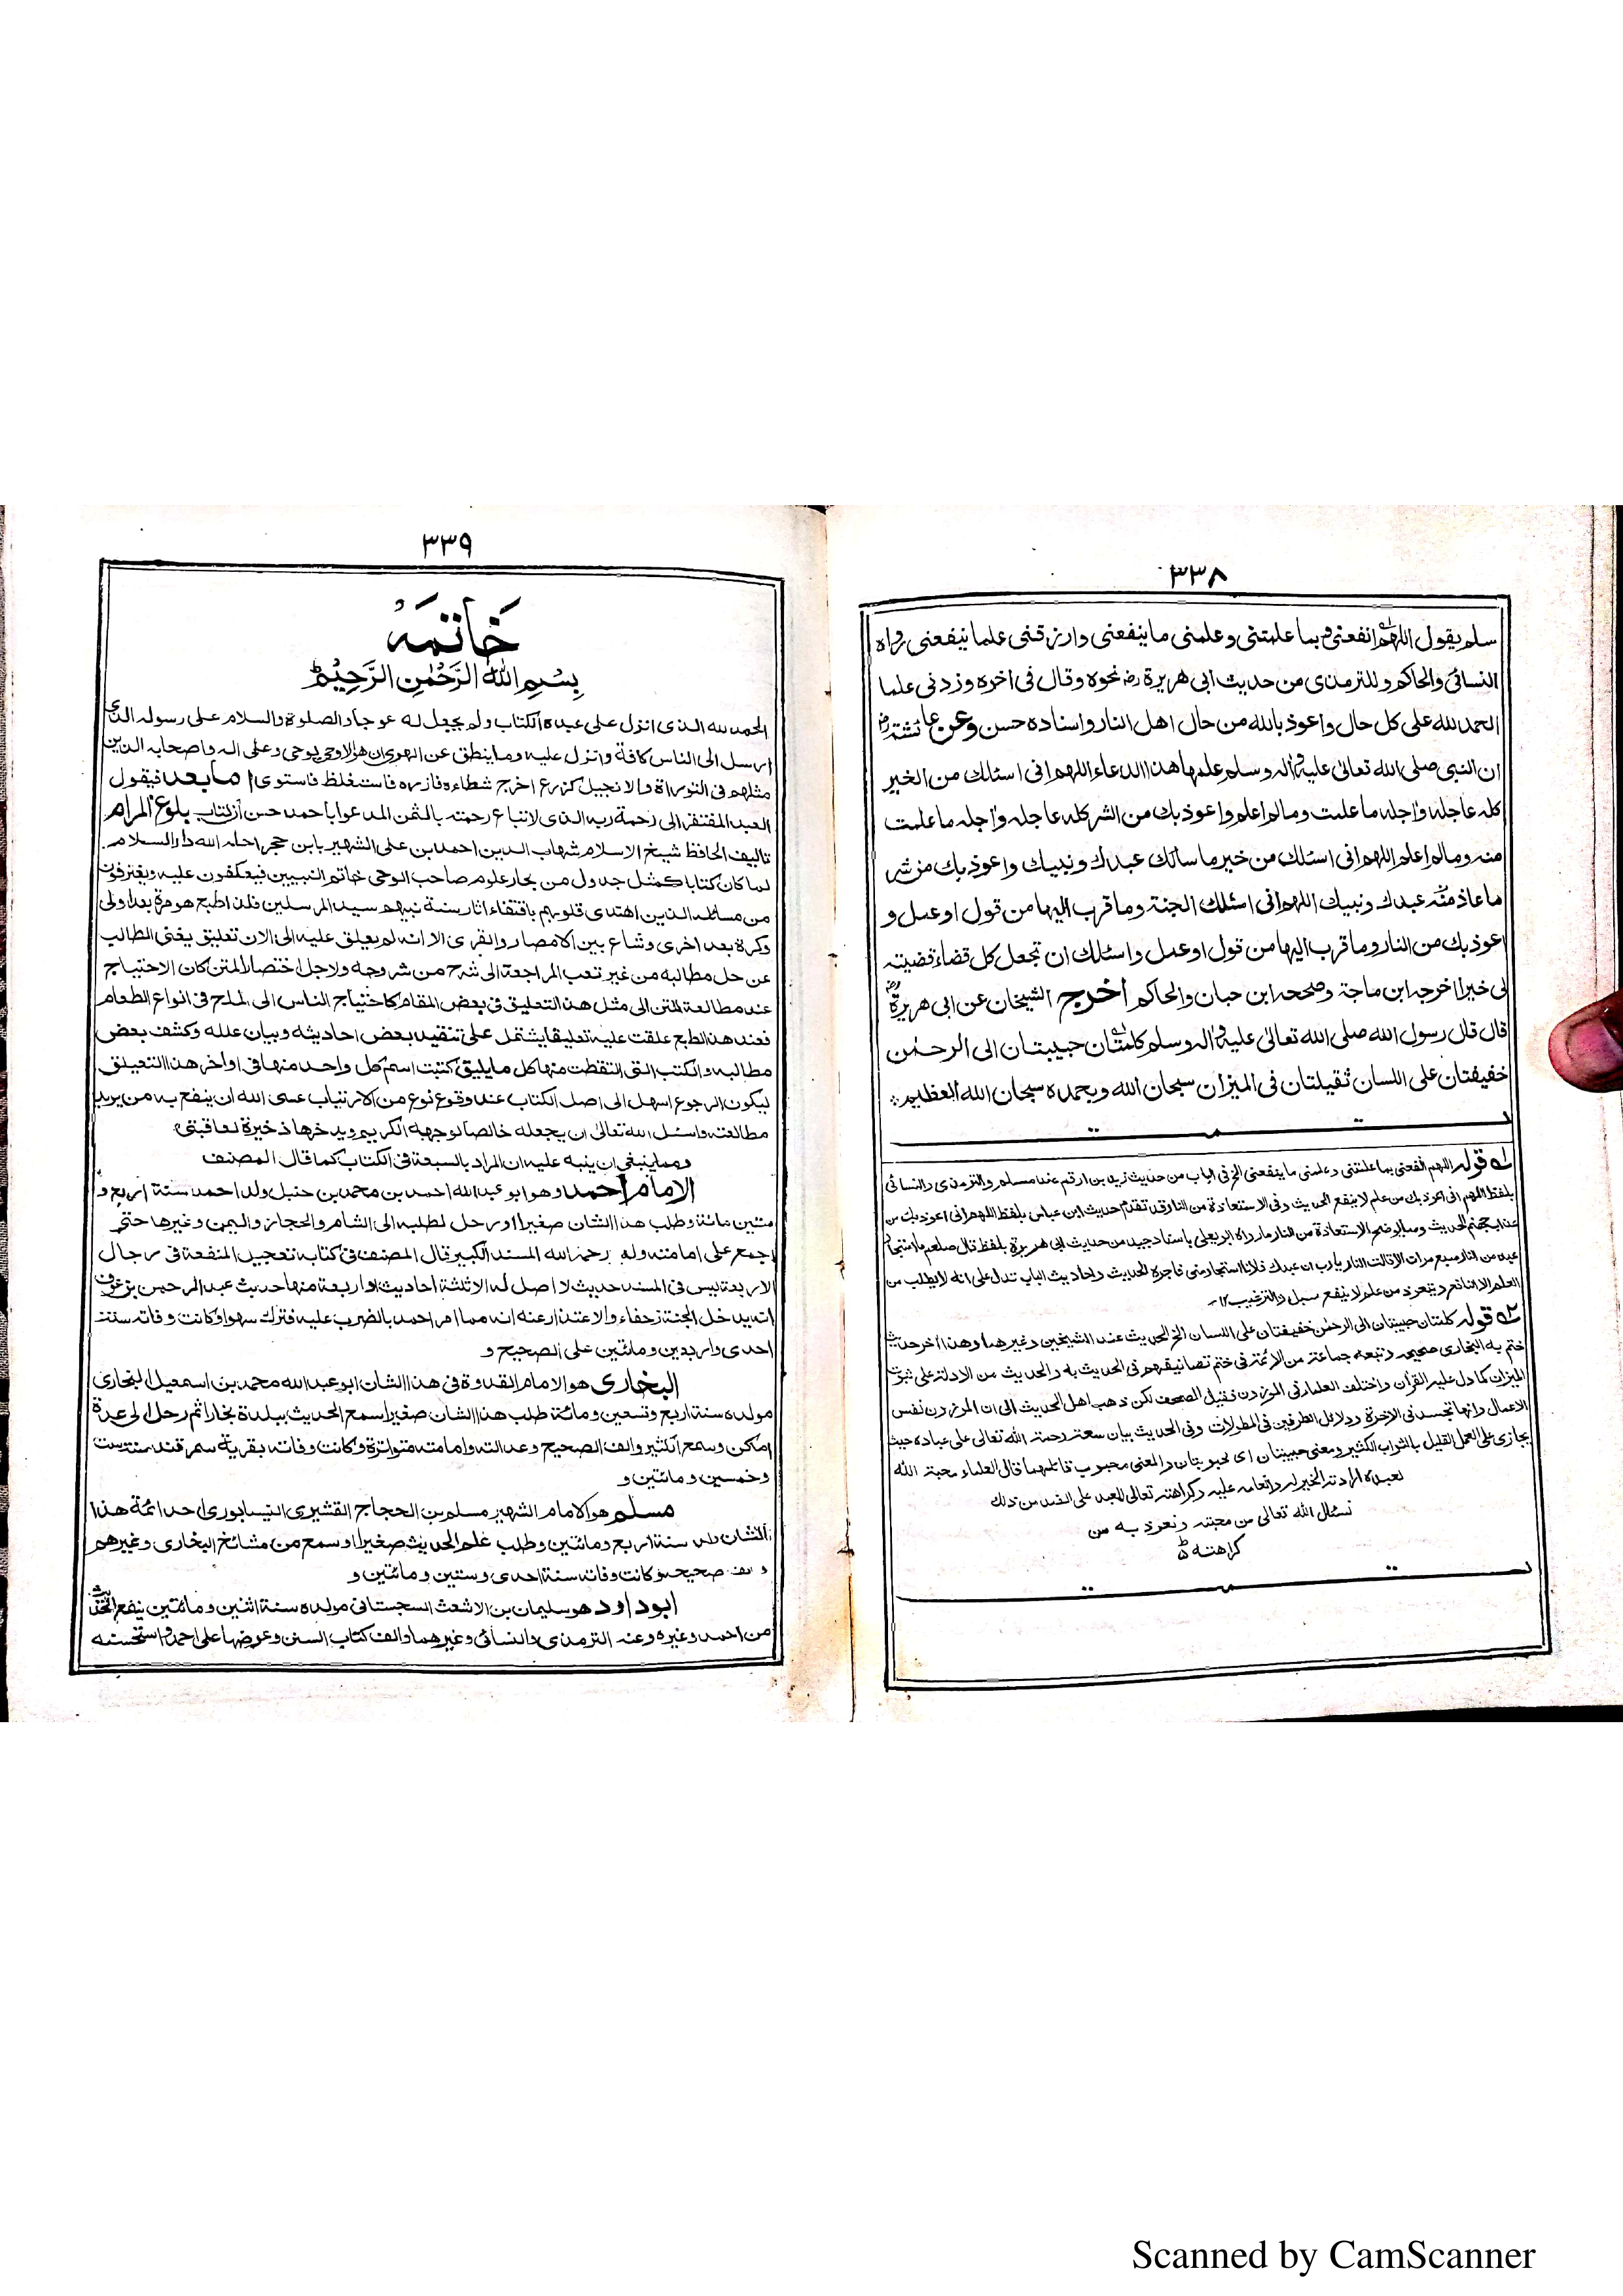 ٣٣٨
سلم يقول اللهم انفعنى بما علمتنى وعلمنى ما ينفعنى وارزقنى علما ينفعنى رواه
النسائى والحاكم وللترمذى من حديث ابى هريرة رض نحوه وقال فى اخره وزدنى علما
الحمد لله على كل حال واعوذ بالله من حال اهل النار واسناده حسن وعن عائشة رض
ان النبى صلى الله تعالى عليه واله وسلم علمها هذا الدعاء اللهم انى اسئلك من الخير
كله عاجله واجله ما علمت وما لم اعلم واعوذ بك من الشر كله عاجله واجله ما علمت
منه وما لم اعلم اللهم انى اسئلك من خير ما سالك عبدك ونبيك واعوذ بك من شر
ما عاذ منه عبدك ونبيك اللهم انى اسئلك الجنة وما قرب اليها من قول او عمل و
اعوذ بك من النار وما قرب اليها من قول او عمل واسئلك ان تجعل كل قضاء قضيته
لى خيرا اخرجه ابن ماجة وصححه ابن حبان والحاكم اخرج الشيخان عن ابى هريرة رض
قال قال رسول الله صلى الله تعالى عليه واله وسلم كلمتان حبيبتان الى الرحمٰن
خفيفتان على اللسان ثقيلتان فى الميزان سبحان الله وبحمده سبحان الله العظيم
قوله اللهم انفعنى بما علمتنى وعلمنى ما ينفعنى الخ فى الباب من حديث زيد بن ارقم عند مسلم والترمذى والنسائى
بلفظ اللهم انى اعوذ بك من علم لا ينفع الحديث وفى الاستعاذة من النار قد تقدم حديث ابن عباس بلفظ اللهم انى اعوذ بك من
عذاب جهنم الحديث ومما يوضح الاستعاذة من النار ما رواه ابو يعلى باسناد جيد من حديث ابى هريرة بلفظ قال صلعم ما استجار
عبد من النار سبع مرات الا قالت النار يا رب ان عبدك فلانا استجار منى فاجره الحديث واحاديث الباب تدل على انه لا يطلب من
العلم الا النافع ويتعوذ من علم لا ينفع سبل والترغيب ١٢
قوله كلمتان حبيبتان الى الرحمن خفيفتان على اللسان الخ الحديث عند الشيخين وغيرهما وهذا اخر حديث
ختم به البخارى صحيحه وتبعه جماعة من الائمة فى ختم تصانيفهم فى الحديث به والحديث من الادلة على ثبوت
الميزان كما دل عليه القرآن واختلف العلماء فى الموزون فقيل الصحف لكن ذهب اهل الحديث الى ان الموزون نفس
الاعمال وانها تجسد فى الاخرة ودلائل الطرفين فى المطولات وفى الحديث بيان سعة رحمة الله تعالى على عباده حيث
يجازى على العمل القليل بالثواب الكثير ومعنى حبيبتان اى محبوبتان والمعنى محبوب قائلهما قال العلماء محبة الله
لعبده ارادته الخير له وانعامه عليه وكراهته تعالى للعبد على الضد من ذلك
نسئال الله تعالى من محبته ونعوذ به من
كراهته
٣٣٩
خاتمه
بسم الله الرحمٰن الرحيم
الحمد لله الذى انزل على عبده الكتاب ولم يجعل له عوجا والصلوة والسلام على رسوله الذى
ارسل الى الناس كافة وانزل عليه وما ينطق عن الهوى ان هو الا وحى يوحى وعلى اله واصحابه الذين
مثلهم فى التوراة والانجيل كزرع اخرج شطاه فازره فاستغلظ فاستوى اما بعد فيقول
العبد المفتقر الى رحمة ربه الذى لا تباع رحمته بالثمن المدعو ابا احمد حسن ان كتاب بلوغ المرام
تاليف الحافظ شيخ الاسلام شهاب الدين احمد بن على الشهير بابن حجر احله الله دار السلام
لما كان كتابا كمثل جدول من بحار علوم صاحب الوحى خاتم النبيين فيعكفون عليه ويغترفون
من مسائله الذين اهتدى قلوبهم باقتفاء اثار سنة نبيهم سيد المرسلين فلذا طبع هو مرة بعد اولى
وكرة بعد اخرى وشاع بين الامصار والقرى الا انه لم يعلق عليه الى الان تعليق يغنى الطالب
عن حل مطالبه من غير تعب المراجعة الى شرح من شروحه ولاجل اختصار المتن كان الاحتياج
عند مطالعة المتن الى مثل هذا التعليق فى بعض المقام كاحتياج الناس الى الملح فى انواع الطعام
فعند هذا الطبع علقت عليه تعليقا يشتمل على تنقيد بعض احاديثه وبيان علله وكشف بعض
مطالبه والكتب التى التقطت منها كل ما يليق كتبت اسم كل واحد منها فى اواخر هذا التعليق
ليكون الرجوع اسهل الى اصل الكتاب عند وقوع نوع من الارتياب عسى الله ان ينفع به من يريد
مطالعته واسئل الله تعالى ان يجعله خالصا لوجهه الكريم ويدخرها ذخيرة لعاقبتى
ومما ينبغى ان ينبه عليه ان المراد بالسبعة فى الكتاب كما قال المصنف
الامام احمد وهو ابو عبد الله احمد بن محمد بن حنبل ولد احمد سنة اربع و
ستين مائة وطلب هذا الشان صغيرا ورحل لطلبه الى الشام والحجاز واليمن وغيرها حتى
اجمع على امامته وله رحمه الله المسند الكبير قال المصنف فى كتابه تعجيل المنفعة فى رجال
الاربعة ليس فى المسند حديث لا اصل له الا ثلثة احاديث او اربعة منها حديث عبد الرحمن بن عوف
انه يدخل الجنة زحفاء والاعتذار عنه انه مما امر احمد بالضرب عليه فترك سهوا وكانت وفاته سنة
احدى واربعين ومائتين على الصحيح و
البخارى هو الامام القدوة فى هذا الشان ابو عبد الله محمد بن اسمعيل البخارى
مولده سنة اربع وتسعين ومائة طلب هذا الشان صغيرا سمع الحديث ببلدة بخارا ثم رحل الى عدة
اماكن وسمع الكثير والف الصحيح وعدالته وامامته متواترة وكانت وفاته بقرية سمرقند سنة ست
وخمسين ومائتين و
مسلم هو الامام الشهير مسلم بن الحجاج القشيرى النيسابورى احد ائمة هذا
الشان ولد سنة اربع ومائتين وطلب علم الحديث صغيرا وسمع من مشائخ البخارى وغيرهم
والف صحيحه وكانت وفاته سنة احدى وستين ومائتين و
ابو داود هو سليمان بن الاشعث السجستانى مولده سنة اثنين ومائتين الحديث
من احمد وغيره وعنه الترمذى والنسائى وغيرهما والف كتاب السنن وعرضها على احمد واستحسنه
Scanned by CamScanner